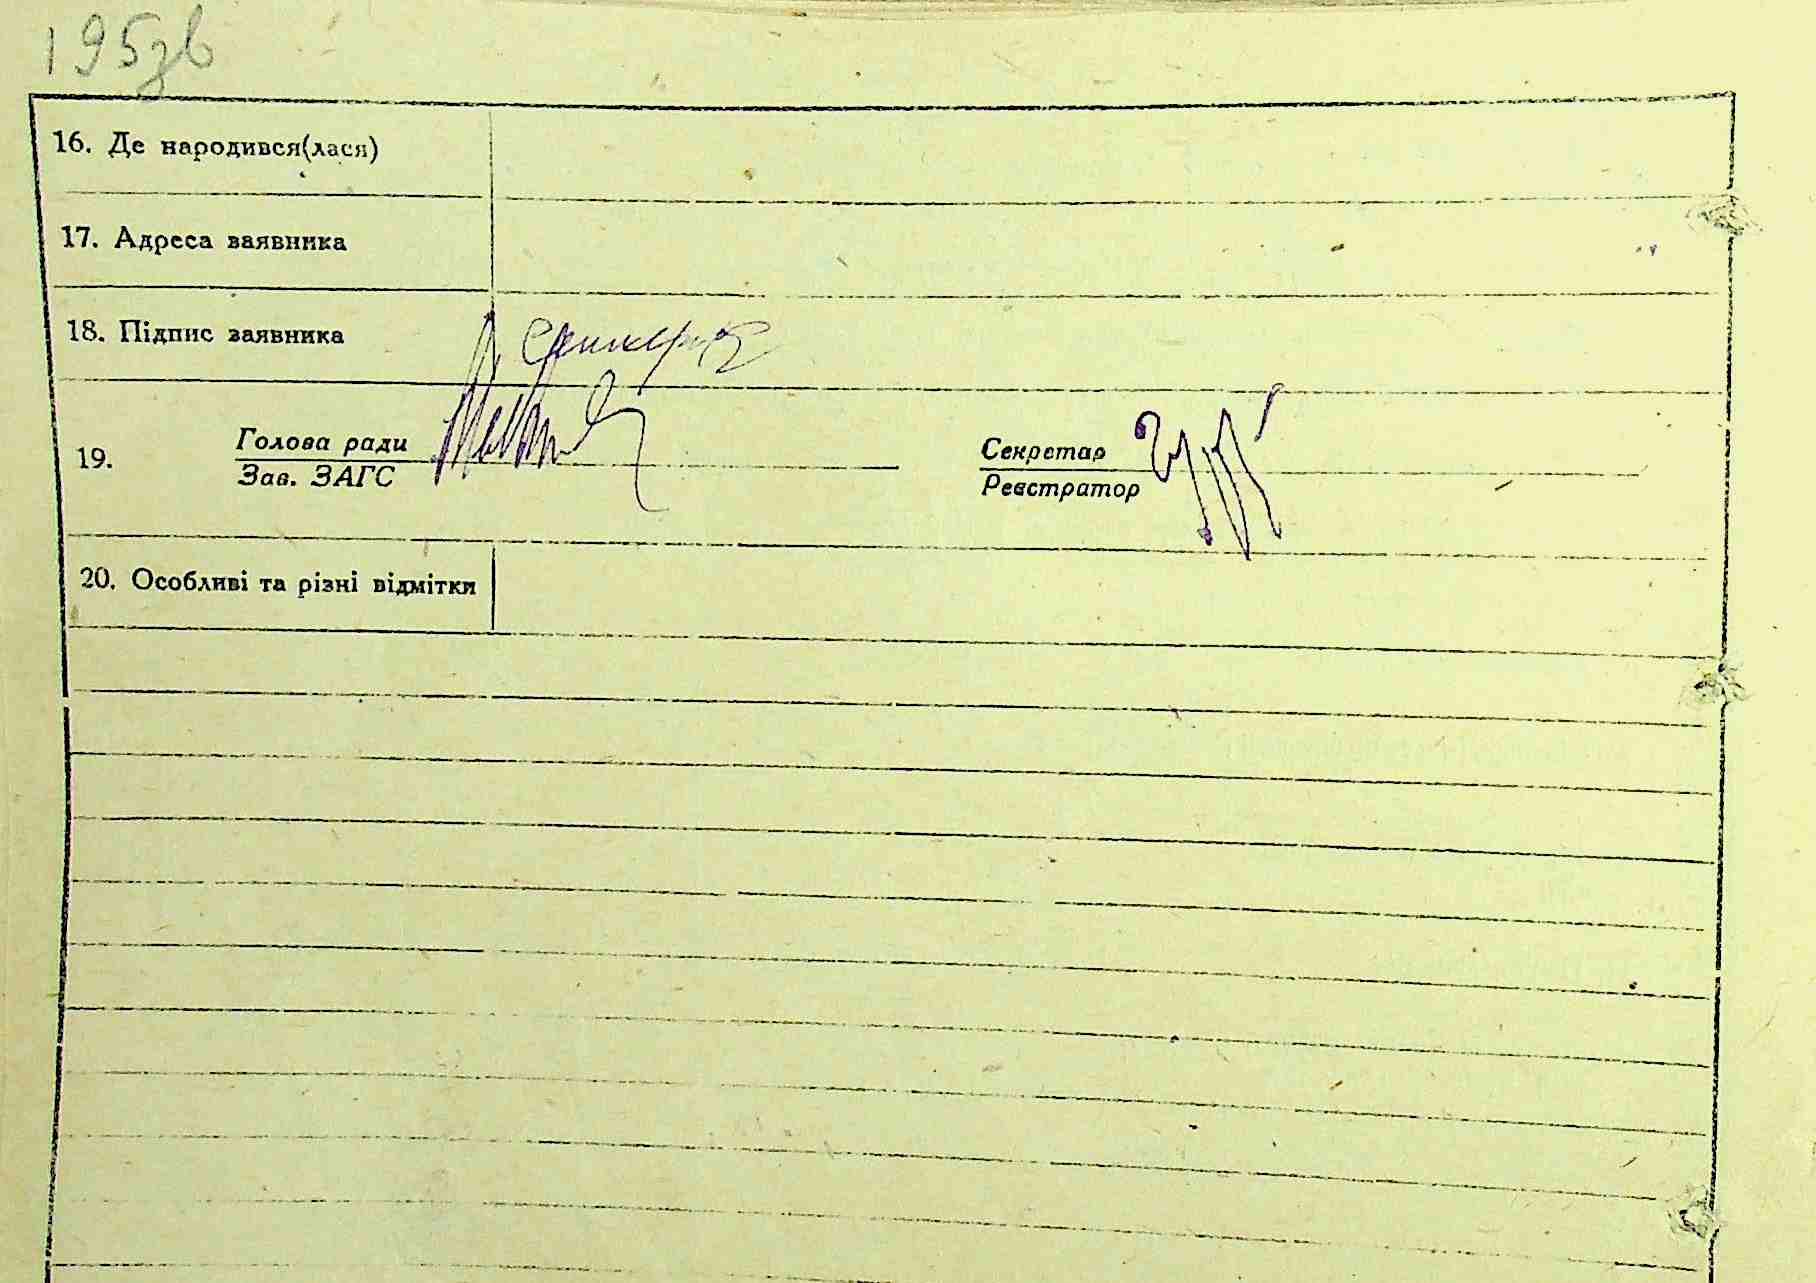 195зв
16. Де народився(лася)
17. Адреса заявника
18. Підпис заявника
19. Голова ради Секретар
Зав. ЗАГС Реєстратор
20. Особливі та різні відмітки